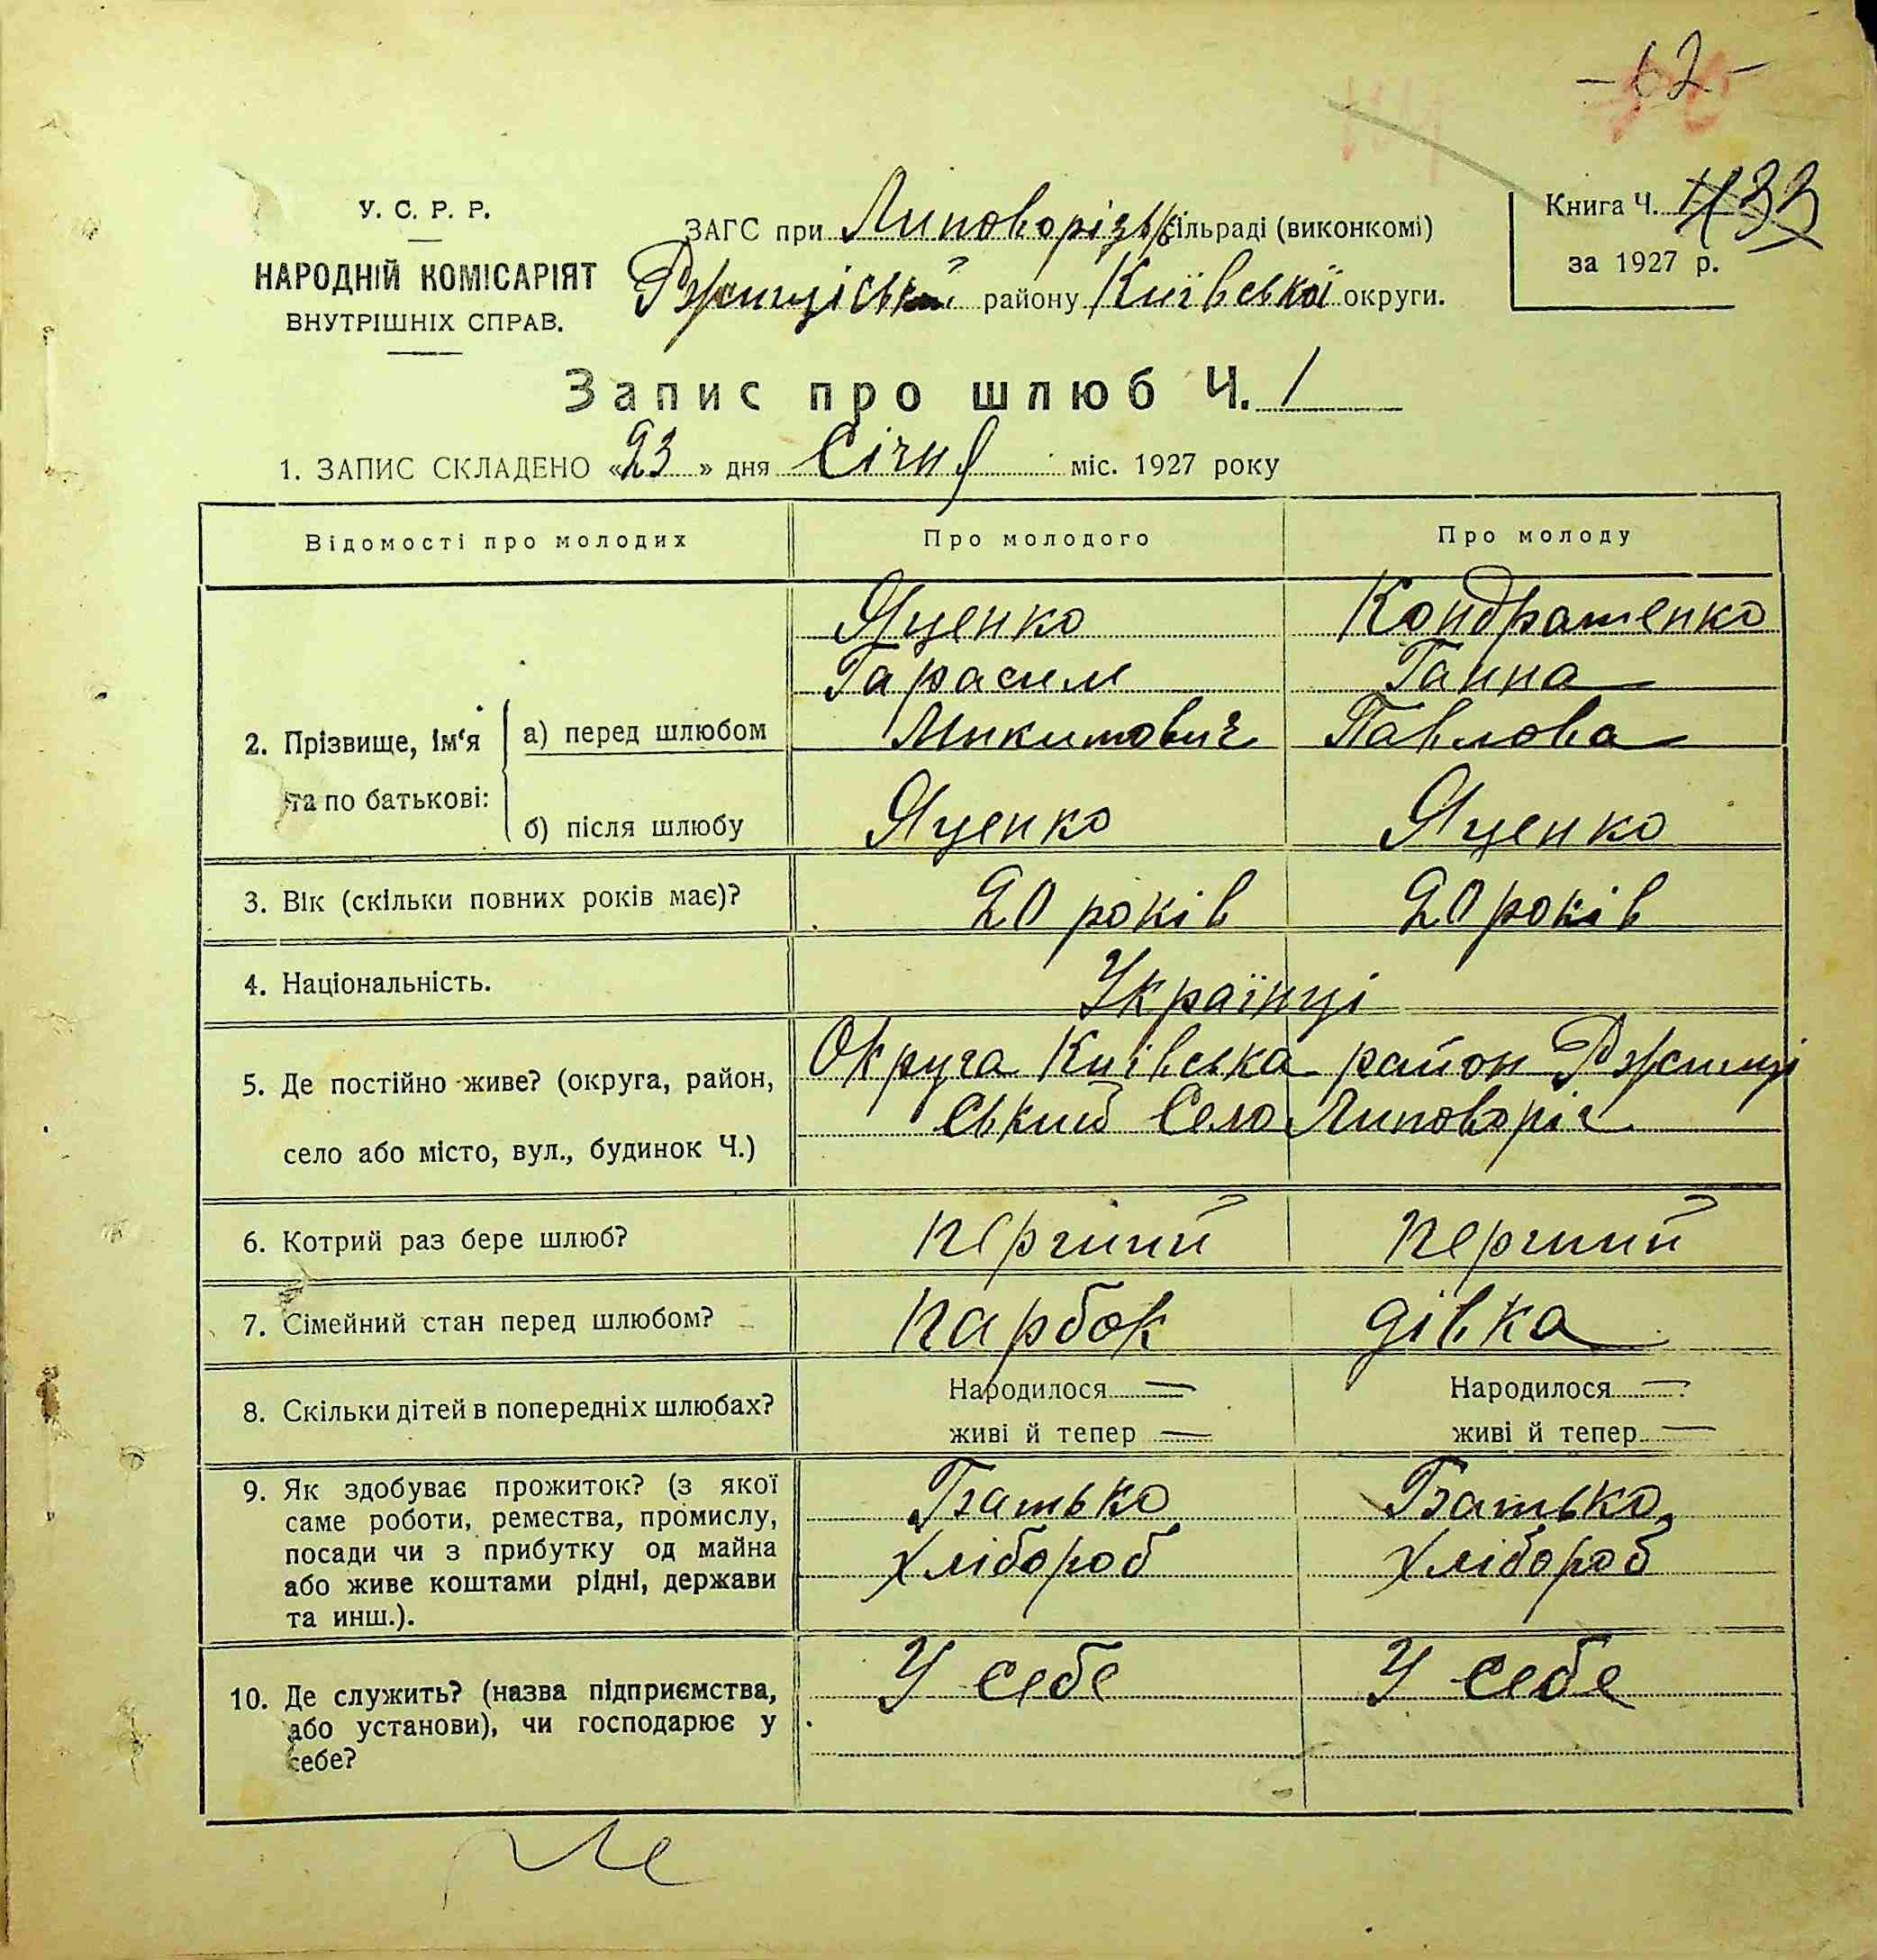 -62-
У. С. Р. Р.
НАРОДНІЙ КОМІСАРІЯТ
ВНУТРІШНІХ СПРАВ.
ЗАГС при Липоворізьк сільраді (виконкомі)
району Київської округи.
Книга Ч.
за 1927 р.
Запис про шлюб Ч. 1
1. ЗАПИС СКЛАДЕНО «23» дня Січня міс. 1927 року
Відомості про молодих Про молодого Про молоду
Яценко Кондратенко
Гарасим Ганна
2. Прізвище, ім'я та по батькові: а) перед шлюбом Микитович Павлова
б) після шлюбу Яценко Яценко
3. Вік (скільки повних років має)? 20 років 20 років
4. Національність. Українці
5. Де постійно живе? (округа, район, Округа Київська район Ржищі
село або місто, вул., будинок Ч.) ський Село Липоворіг
6. Котрий раз бере шлюб? перший перший
7. Сімейний стан перед шлюбом? парбок дівка
8. Скільки дітей в попередніх шлюбах? Народилося — Народилося —
живі й тепер — живі й тепер —
9. Як здобуває прожиток? (з якої Батько Батько
саме роботи, ремества, промислу,
посади чи з прибутку од майна Хлібороб Хлібороб
або живе коштами рідні, держави
та инш.).
10. Де служить? (назва підприємства, У себе У себе
або установи), чи господарює у
себе?